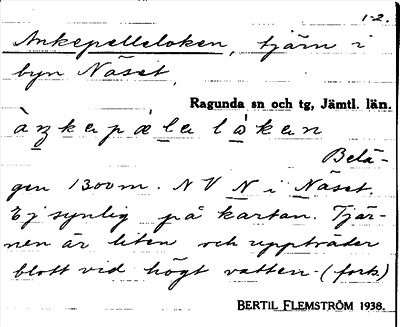 1-2.
Ankepelleloken, tjärn i
byn Näset,
Ragunda sn och tg, Jämtl. län.
Belä-
gen 1300 m. N V N i Näset.
Ej synlig på kartan. Tjär-
nen är liten och uppträder
blott vid högt vatten (forts.)
BERTIL FLEMSTRÖM 1938.